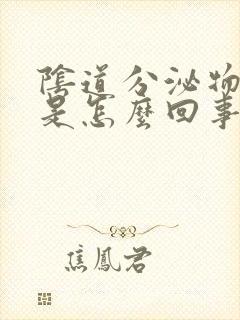 陰道分泌物
是怎麽回事
焦鳳君